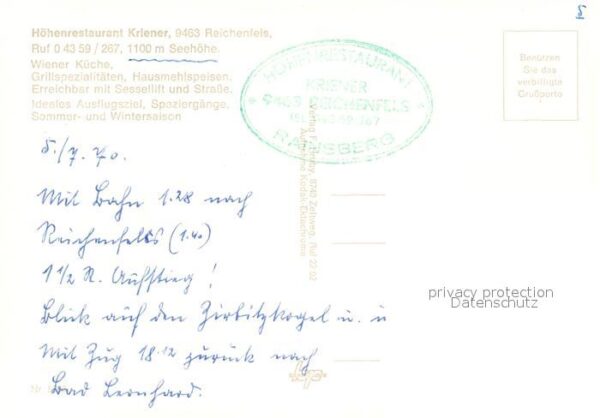 Höhenrestaurant Kriener, 9463 Reichenfels,
Ruf 0 43 59 / 267, 1100 m Seehöhe.
Wiener Küche,
Grillspezialitäten, Hausmehlspeisen.
Erreichbar mit Sessellift und Straße.
Ideales Ausflugsziel, Spaziergänge.
Sommer- und Wintersaison
HÖHENRESTAURANT
KRIENER
9463 REICHENFELS
RAINSBERG
Benützen
Sie das
verbilligte
Grußporto
8740 Zeltweg, Ruf 22 92
Aufnahme Kodak-Ektachrome
5./7. 70.
Mit Bahn 1.28 nach
Reichenfels (1.40)
1 1/2 St. Aufstieg!
Blick auf den Zirbitzkogel u. u
Mit Zug 18.12 zurück nach
Bad Leonhard.
privacy protection
Datenschutz